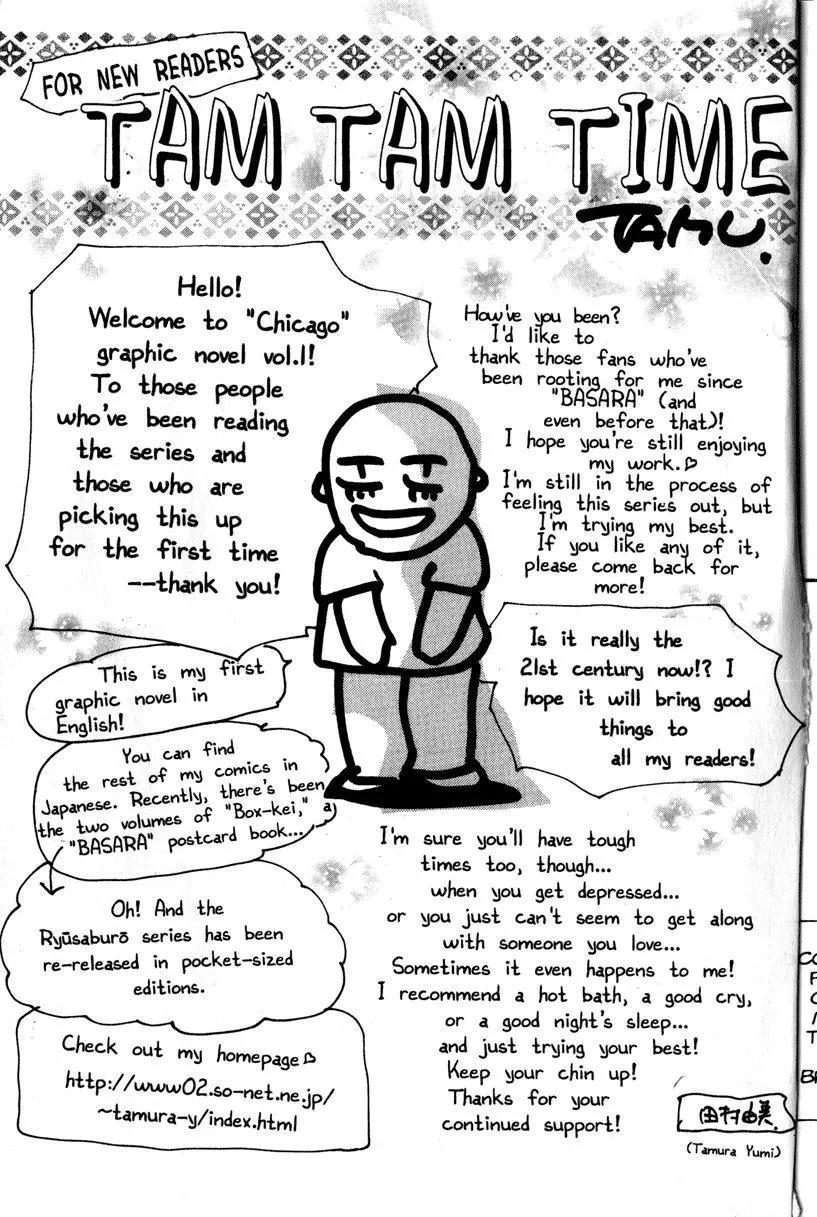 FOR NEW READERS
TAM TAM TIME
TAMU.
Hello!
Welcome to "Chicago"
graphic novel vol.1!
To those people
who've been reading
the series and
those who are
picking this up
for the first time
--thank you!
How've you been?
I'd like to
thank those fans who've
been rooting for me since
"BASARA" (and
even before that)!
I hope you're still enjoying
my work.♡
I'm still in the process of
feeling this series out, but
I'm trying my best.
If you like any of it,
please come back for
more!
This is my first
graphic novel in
English!
Is it really the
21st century now!? I
hope it will bring good
things to
all my readers!
You can find
the rest of my comics in
Japanese. Recently, there's been
the two volumes of "Box-kei," a
"BASARA" postcard book...
Oh! And the
Ryūsaburō series has been
re-released in pocket-sized
editions.
Check out my homepage♡
http://www02.so-net.ne.jp/
~tamura-y/index.html
I'm sure you'll have tough
times too, though...
when you get depressed...
or you just can't seem to get along
with someone you love...
Sometimes it even happens to me!
I recommend a hot bath, a good cry,
or a good night's sleep...
and just trying your best!
Keep your chin up!
Thanks for your
continued support!
田村由美.
(Tamura Yumi)